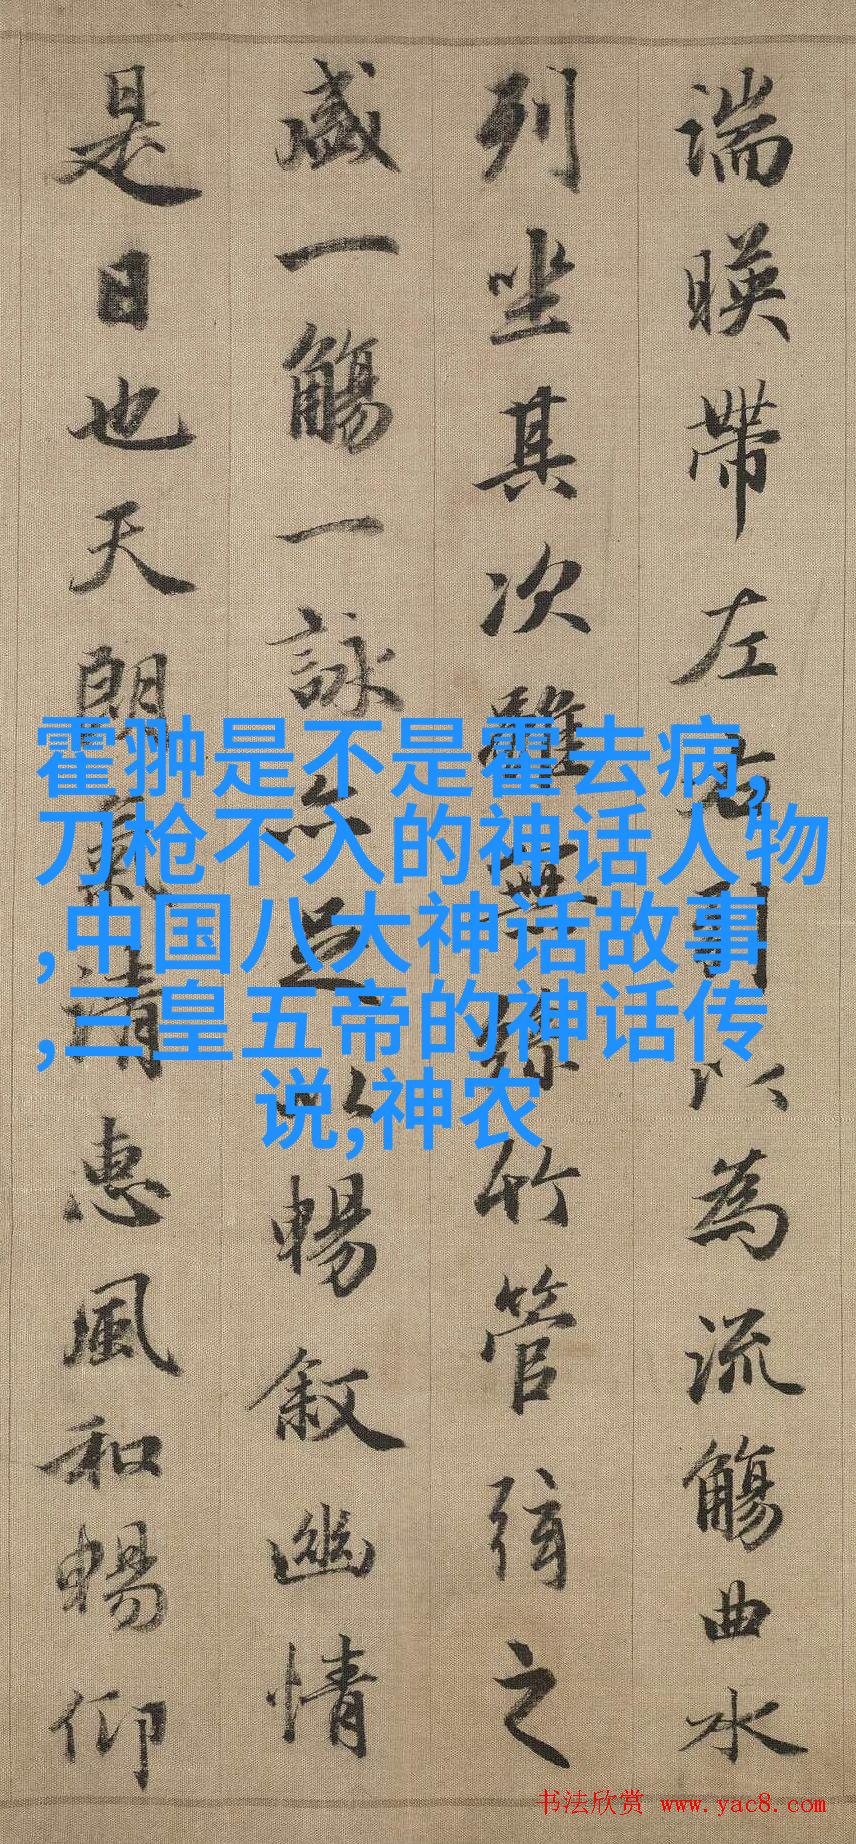 湍暎帶左右引以為流觴曲水
列坐其次雖無絲竹管弦之
盛一觴一詠亦足以暢叙幽情
是日也天朗氣清惠風和暢仰
霍翀是不是霍去病,
刀枪不入的神话人物
,中国八大神话故事
,三皇五帝的神话传
说,神农
书法欣赏 www.yac8.com